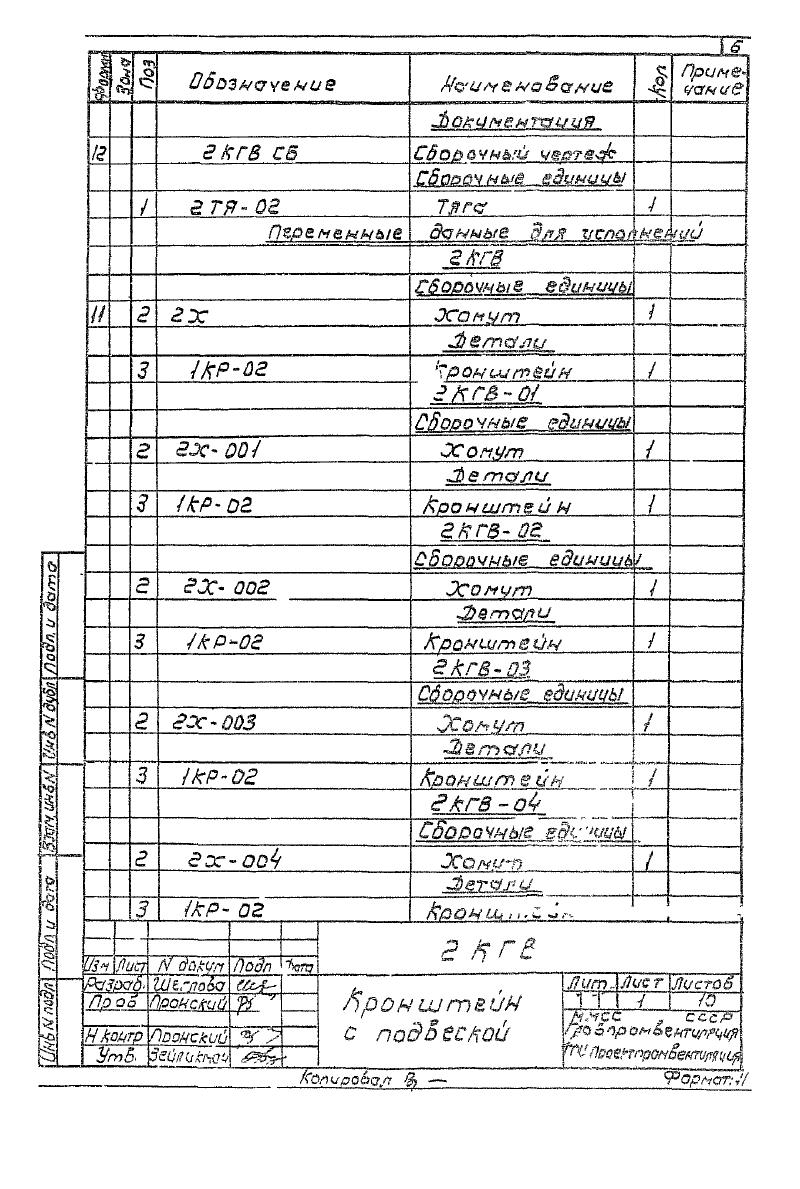 6
Формат Зона Поз Обозначение Наименование Кол Приме-
чание
Документация
12 2КГВ СБ Сборочный чертеж
Сборочные единицы
1 2ТЯ-02 Тяга 1
Переменные данные для исполнений
2КГВ
Сборочные единицы
11 2 2Х Хомут 1
Детали
3 1КР-02 Кронштейн 1
2КГВ-01
Сборочные единицы
2 2Х-001 Хомут 1
Детали
3 1КР-02 Кронштейн 1
2КГВ-02
Сборочные единицы
2 2Х-002 Хомут 1
Детали
3 1КР-02 Кронштейн 1
2КГВ-03
Сборочные единицы
2 2Х-003 Хомут 1
Детали
3 1КР-02 Кронштейн 1
2КГВ-04
Сборочные единицы
2 2Х-004 Хомут 1
Детали
3 1КР-02 Кронштейн
2КГВ
Изм Лист N докум Подп Дата
Разраб. Щеглова
Пров Пронский
Н контр Пронский
Утв.
Кронштейн
с подвеской
Лит. Лист Листов
1 10
ММСС СССР
Главпромвентиляция
ГПИ Проектпромвентиляция
Инв N подл Подп и дата Взам.инв.N Инв N дубл Подп. и дата
Копировал
Формат: 11